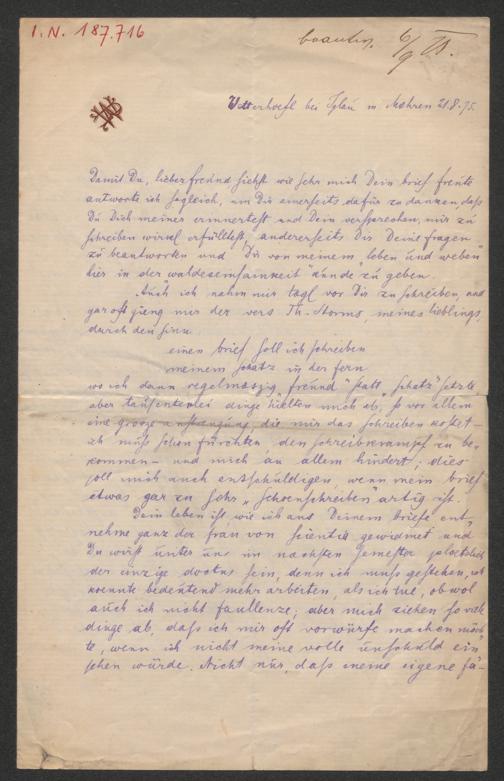 I. N. 187.716
beantw. 6/9 95.
Wetterhoefl bei Iglau in Mähren 21.8.95.
Damit Du, lieber freund, siehst wie sehr mich Dein brief freute
antworte ich sogleich, um Dir einerseits dafür zu danken, daß
Du Dich meiner erinnertest und Dein versprechen, mir zu
schreiben wirkl. erfülltest, andererseits Dir Deine fragen
zu beantworten und Dir von meinem "leben und weben"
hier in der "waldeseinsamkeit" kunde zu geben.
Auch ich nahm mir tägl. vor Dir zu schreiben, und
gar oft gieng mir der vers Th. Storms, meines lieblings,
durch den sinn:
einen brief soll ich schreiben
meinem schatz in der fern
wo ich dann regelmässig "freund" statt "schatz" setzte,
aber tausenderlei dinge hielten mich ab, so vor allem
eine grosze anstrengung, die mir das schreiben kostet –
ich muss schon fürchten, den schreibkrampf zu be-
kommen – und mich an allem hindert; dies
soll mich auch entschuldigen, wenn mein brief
etwas gar zu sehr "schoenschreiben"artig ist.
Dein leben ist, wie ich aus Deinem briefe ent-
nehme ganz der frau von scientia gewidmet und
Du wirst unter uns im nächsten semester
der einzige doctus sein, denn ich muss gestehen, ich
koennte bedeutend mehr arbeiten, als ich tue, obwol
auch ich nicht faullenze; aber mich ziehen so viele
dinge ab, dass ich mir oft vorwürfe machen möch-
te, wenn ich nicht meine volle unschuld ein
sehen würde. Nicht nur, dass meine eigene fä-